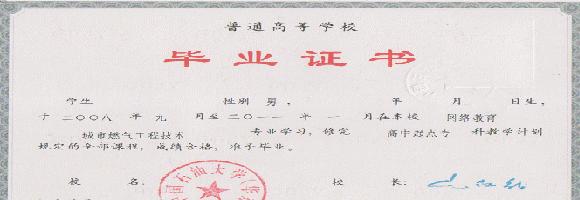 普通高等学校
毕业证书
学生 性别 男， 年 月 日生，
于二〇〇八年九月至二〇一一年一月在本校 网络教育
城市燃气工程技术 专业学习，修完 高中起点专 科教学计划
规定的全部课程，成绩合格，准予毕业。
校名： 校长：
国石油大学（华